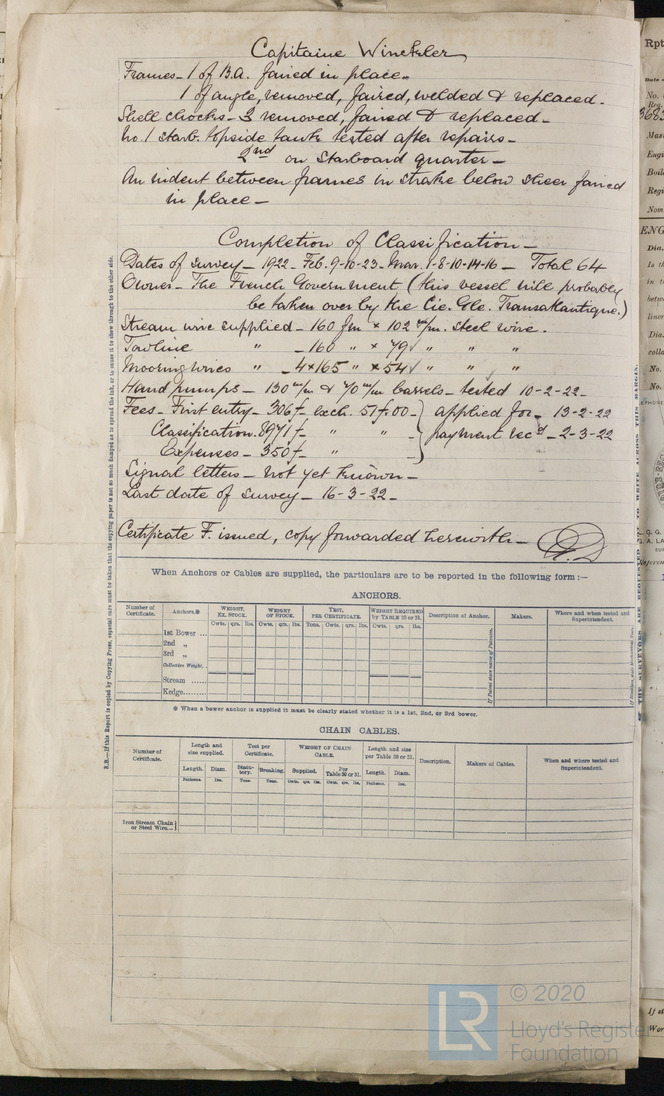 Capitaine Winckler
Frames - 1 of B.A. faired in place.
1 of angle, removed, faired, welded & replaced.
Shell chocks - 3 removed, faired & replaced -
No. 1 starb. topside tank tested after repairs -
2nd on Starboard quarter -
An indent between frames in strake below sheer faired
in place -
Completion of Classification -
Dates of survey - 1922 - Feb. 9-10-23 - Mar. 1-8-10-14-16 - Total 64
Owner - The French Government (this vessel will probably
be taken over by the Cie. Gle. Transatlantique.)
Stream wire supplied - 160 fm × 102 m/m. steel wire.
Towline " - 160 " × 79 √ " " "
Mooring wires " - 4×165 " × 54 √ " " "
Hand pumps - 130 m/m & 70 m/m barrels - tested 10-2-22 -
Fees - First entry - 306f - exch. 51f.00 - } applied for - 13-2-22
Classification. 8971f - " " - } payment recd - 2-3-22
Expenses - 350f - " - }
Signal letters - not yet known -
Last date of survey - 16-3-22 -
Certificate F. issued, copy forwarded herewith -
When Anchors or Cables are supplied, the particulars are to be reported in the following form :—
ANCHORS.
Number of Certificate. Anchors.* WEIGHT, EX. STOCK. WEIGHT OF STOCK. TEST, PER CERTIFICATE. WEIGHT REQUIRED by TABLE 30 or 31. Description of Anchor. Makers. Where and when tested and Superintendent.
Cwts. qrs. lbs. Cwts. qrs. lbs. Tons. Cwts. qrs. lbs. Cwts. qrs. lbs.
1st Bower ...
2nd "
3rd "
Collective Weight.
Stream ......
Kedge........
* When a bower anchor is supplied it must be clearly stated whether it is a 1st, 2nd, or 3rd bower.
CHAIN CABLES.
Number of Certificate. Length and size supplied. Test per Certificate. WEIGHT OF CHAIN CABLE. Length and size per Table 30 or 31. Description. Makers of Cables. When and where tested and Superintendent.
Length. Diam. Statutory. Breaking. Supplied. Per Table 30 or 31. Length. Diam.
Fathoms. Ins. Tons. Tons. Cwts. qrs. lbs. Cwts. qrs. lbs. Fathoms. Ins.
Iron Stream Chain or Steel Wire...
N.B.—If this Report is copied by Copying Press, especial care must be taken that the copying paper is not so much damped as to spread the ink, or to cause it to show through to the other side.
LR
© 2020
Lloyd's Register
Foundation